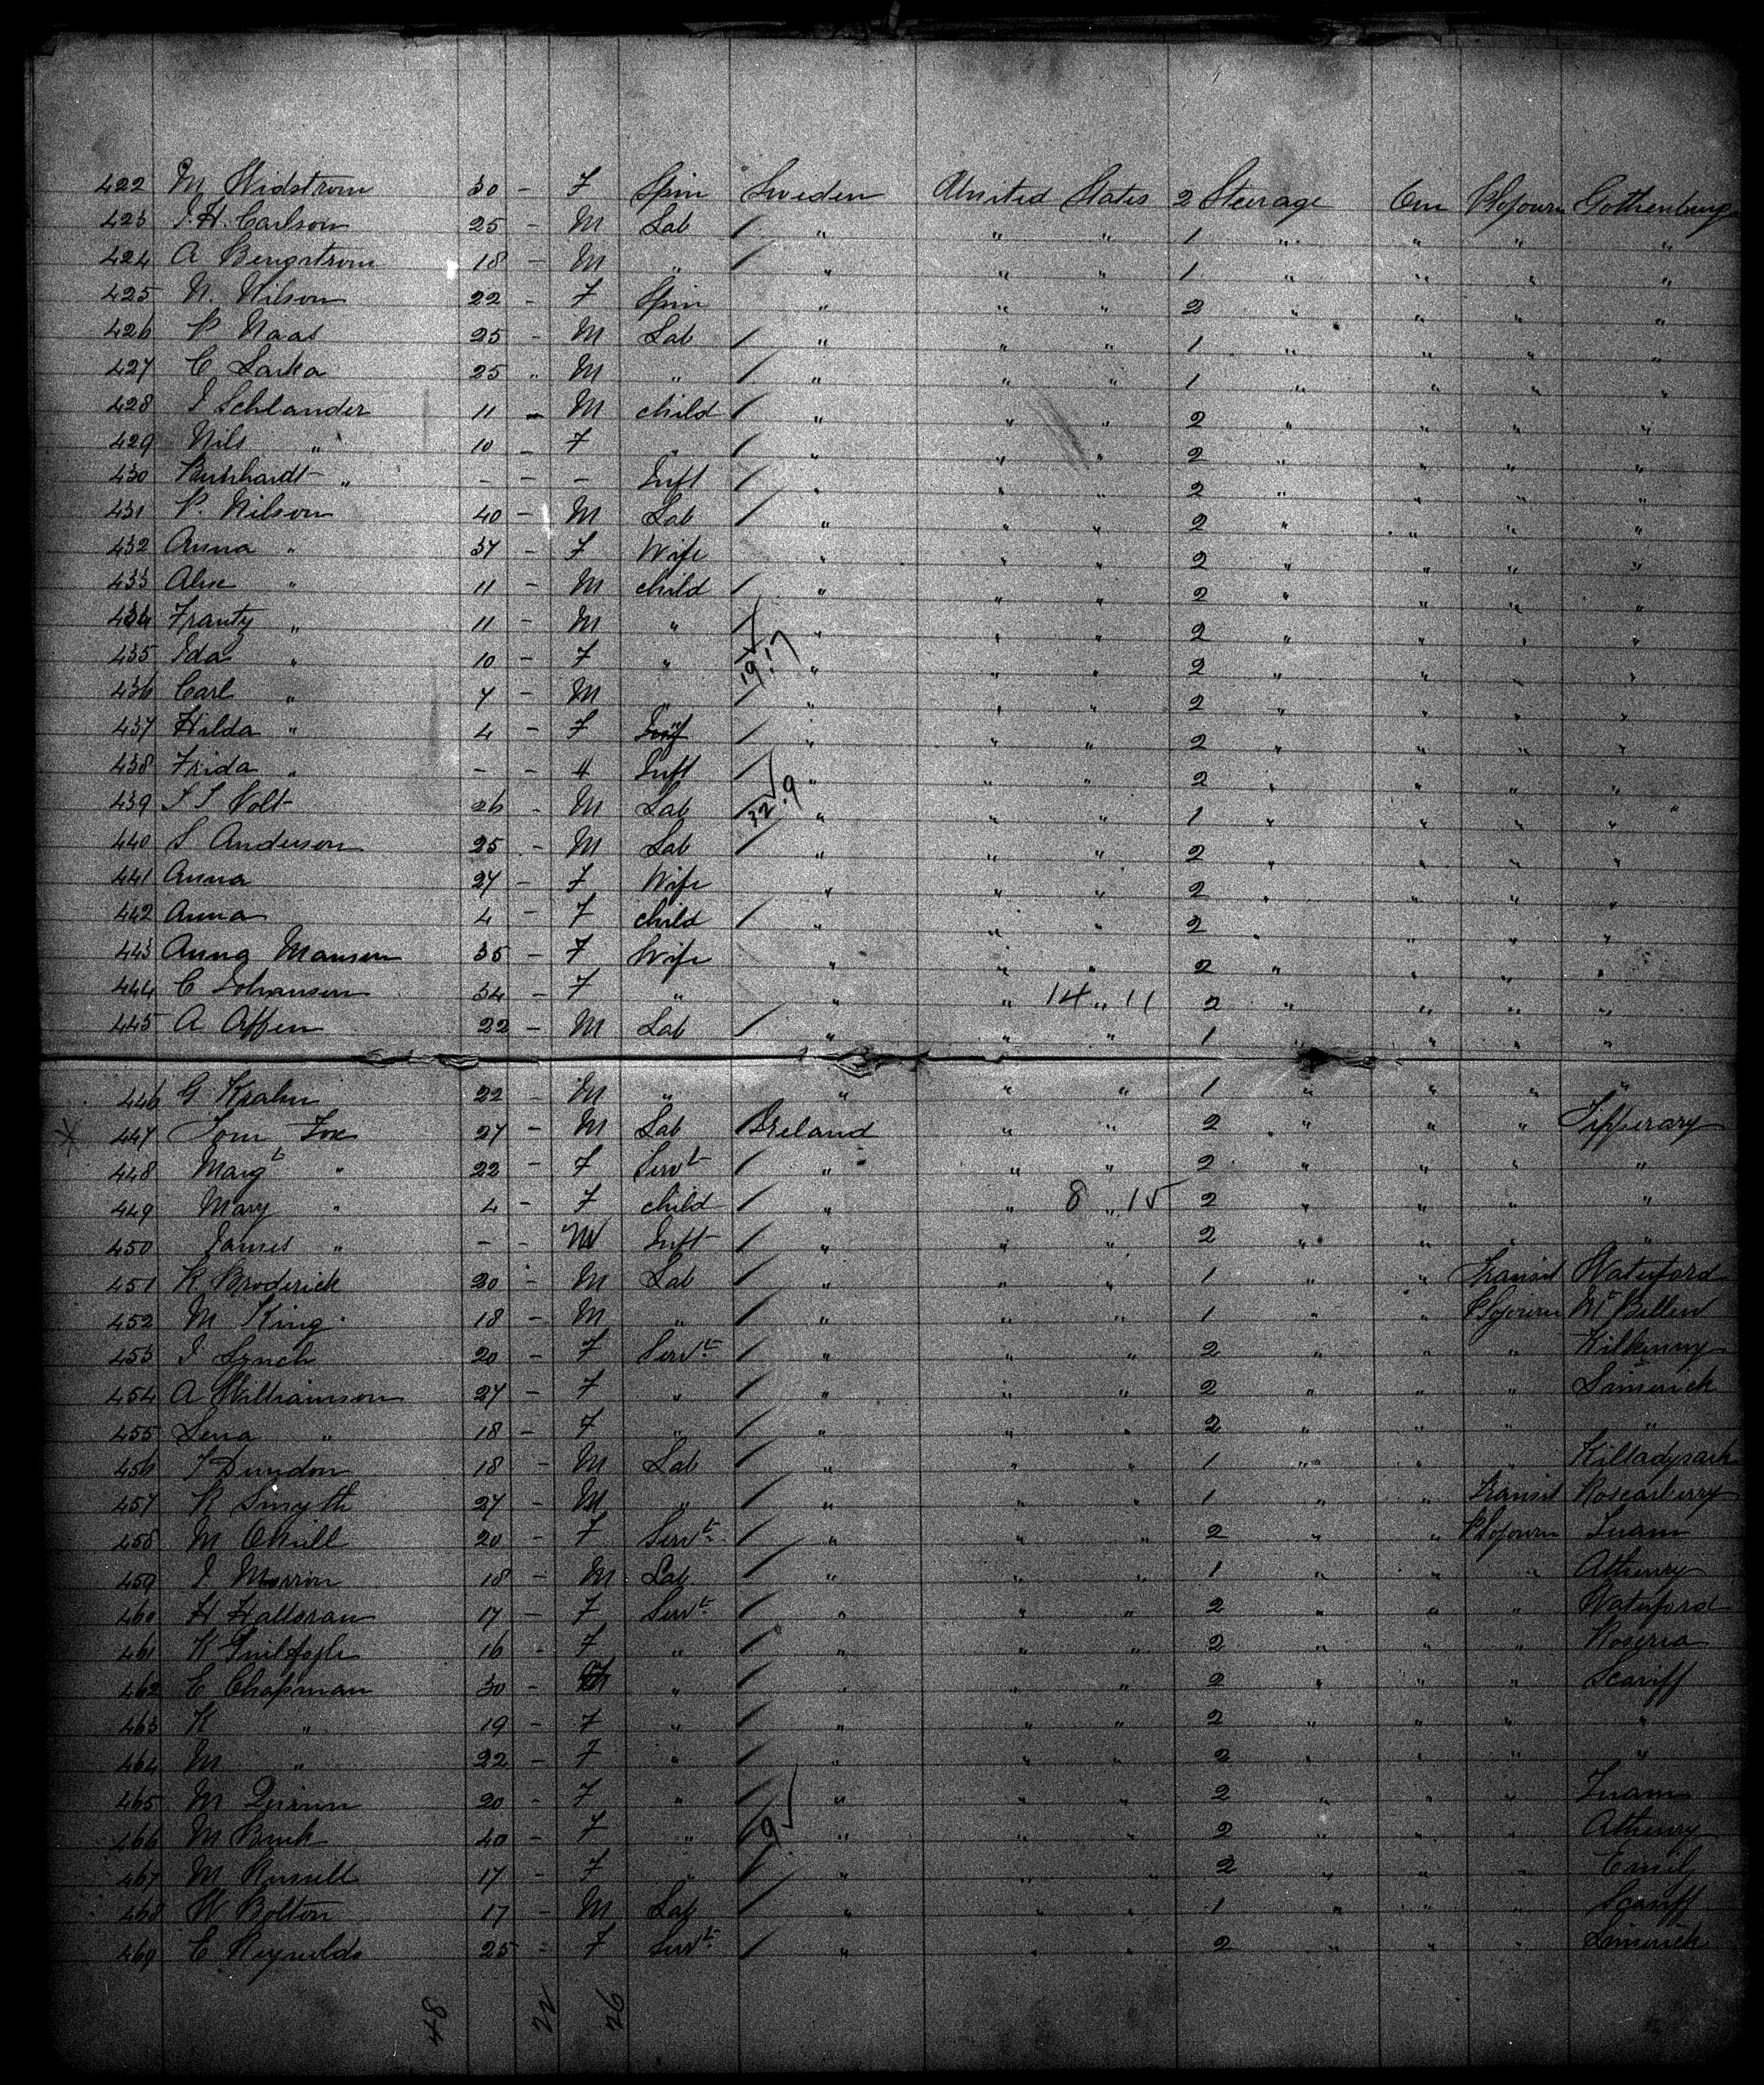 422 M Widstrom 30 - F Spin Sweden United States 2 Steerage One P Sojourn Gothenburg
423 J. H. Carlson 25 - M Lab / " " " 1 " " " "
424 A Bengstrom 18 - M " / " " " 1 " " " "
425 N. Nilson 22 - F Spin " " " 2 " " " "
426 P Naas 25 - M Lab / " " " 1 " " " "
427 C Larka 25 " M " / " " " 1 " " " "
428 J Schlander 11 - M child / " " " 2 " " " "
429 Nils " 10 - F " / " " " 2 " " " "
430 " - - - Inft / " " " 2 " " " "
431 P. Nilson 40 - M Lab / " " " 2 " " " "
432 Anna " 37 - F Wife " " " 2 " " " "
433 " 11 - M child / " " " 2 " " " "
434 Frantz " 11 - M " / " " " 2 " " " "
435 Ida " 10 - F " " " " 2 " " " "
436 Carl " 7 - M " / " " " 2 " " " "
437 Hilda " 4 - F / " " " 2 " " " "
438 Frida " - - Inft / " " " 2 " " " "
439 Volt 26 - M Lab / " " " 1 " " " "
440 S Anderson 25 - M Lab / " " " 2 " " " "
441 Anna 27 - F Wife " " " 2 " " " "
442 Anna 4 - F child / " " " 2 " " " "
443 Anna Mansen 35 - F Wife " " " 2 " " " "
444 C Johansen 34 - F " " " 14 " 11 2 " " " "
445 A Affen 22 - M Lab / " " " 1 " " " "
446 G Krahn 22 - M " " " " 1 " " " "
447 Tom Fox 27 - M Lab Ireland " " 2 " " " Tipperary
448 Margt " 22 - F Servt / " " " 2 " " " "
449 Mary " 4 - F child / " " 8 " 15 2 " " " "
450 James " - - M Inft / " " " 2 " " " "
451 K Broderick 20 - M Lab / " " " 1 " " Transit Waterford
452 M King 18 - M " / " " " 1 " " P Sojourn Mt Bellew
453 J Lynch 20 - F Servt / " " " 2 " " " Kilkenny
454 A Williamson 27 - F " / " " " 2 " " " Limerick
455 Lena " 18 - F " / " " " 2 " " " "
456 J Dundon 18 - M Lab / " " " 1 " " " Killadysart
457 R Smyth 27 - M " / " " " 1 " " Transit Roscarberry
458 M ONeill 20 - F Servt / " " " 2 " " P Sojourn Tuam
459 J Morrin 18 - M Lab / " " " 1 " " " Athenry
460 H Halloran 17 - F Servt / " " " 2 " " " Waterford
461 K 16 - F " / " " " 2 " " " Roscrea
462 E Chapman 30 - F " / " " " 2 " " " Scariff
463 K " 19 - F " / " " " 2 " " " "
464 M " 22 - F " / " " " 2 " " " "
465 M Quinn 20 - F " / " " " 2 " " " Tuam
466 M Burk 40 - F " / " " " 2 " " " Athenry
467 M Russell 17 - F " / " " " 2 " " " Emily
468 W Bolton 17 - M Lab / " " " 1 " " " Scariff
469 E Reynolds 25 - F Servt / " " " 2 " " " Limerick
48 22 26